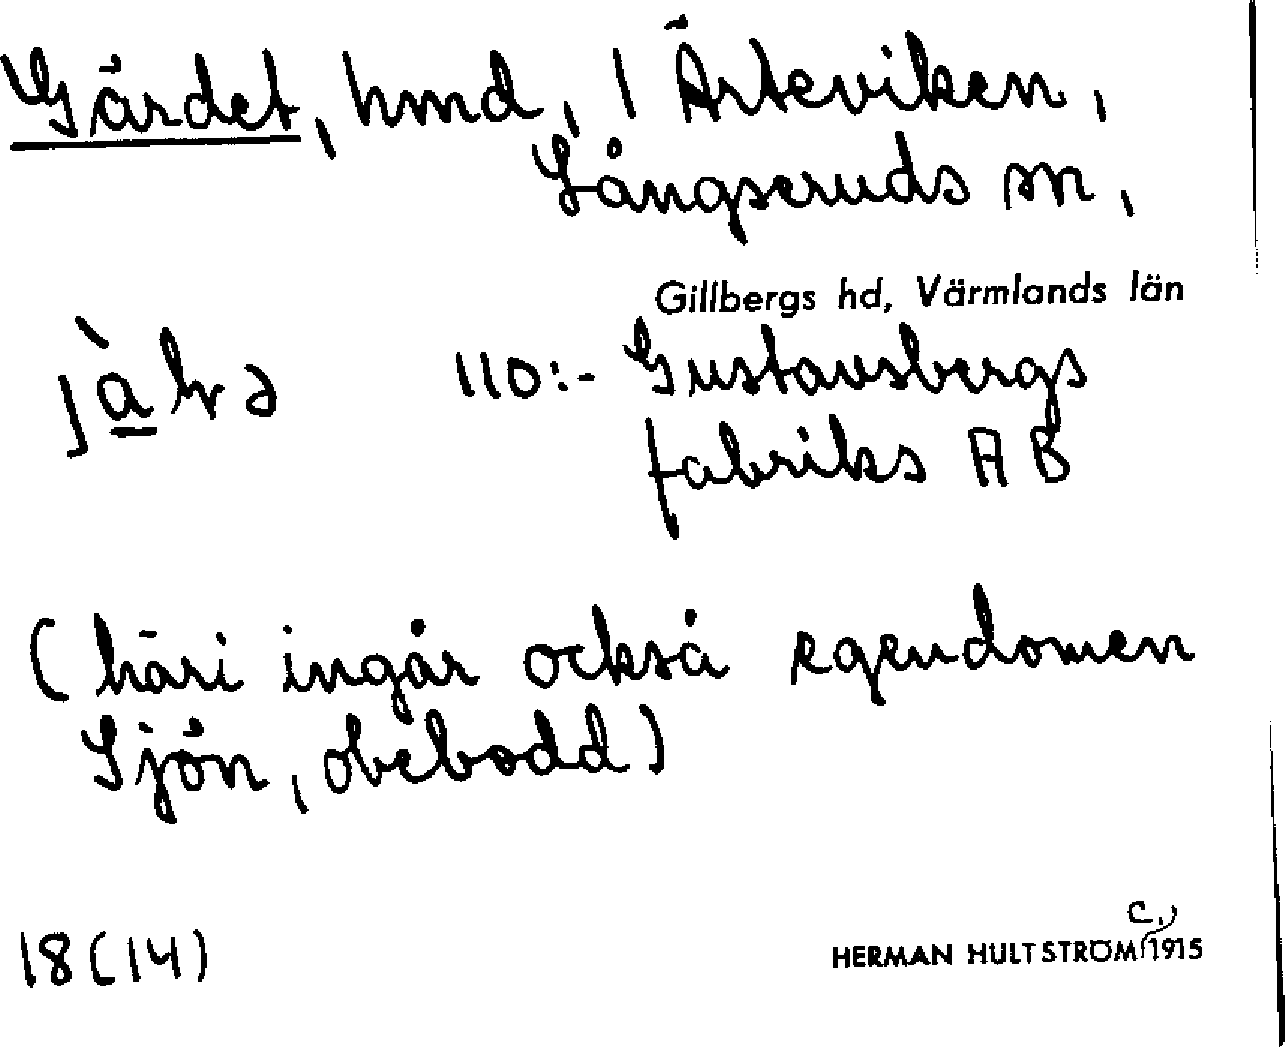 Gärdet, hmd, 1 Ärteviken,
Långseruds sn,
Gillbergs hd, Värmlands län
110:- Gustavsbergs
fabriks AB
(häri ingår också egendomen
Sjön, obebodd)
18(14)
HERMAN HULTSTRÖM, c. 1915